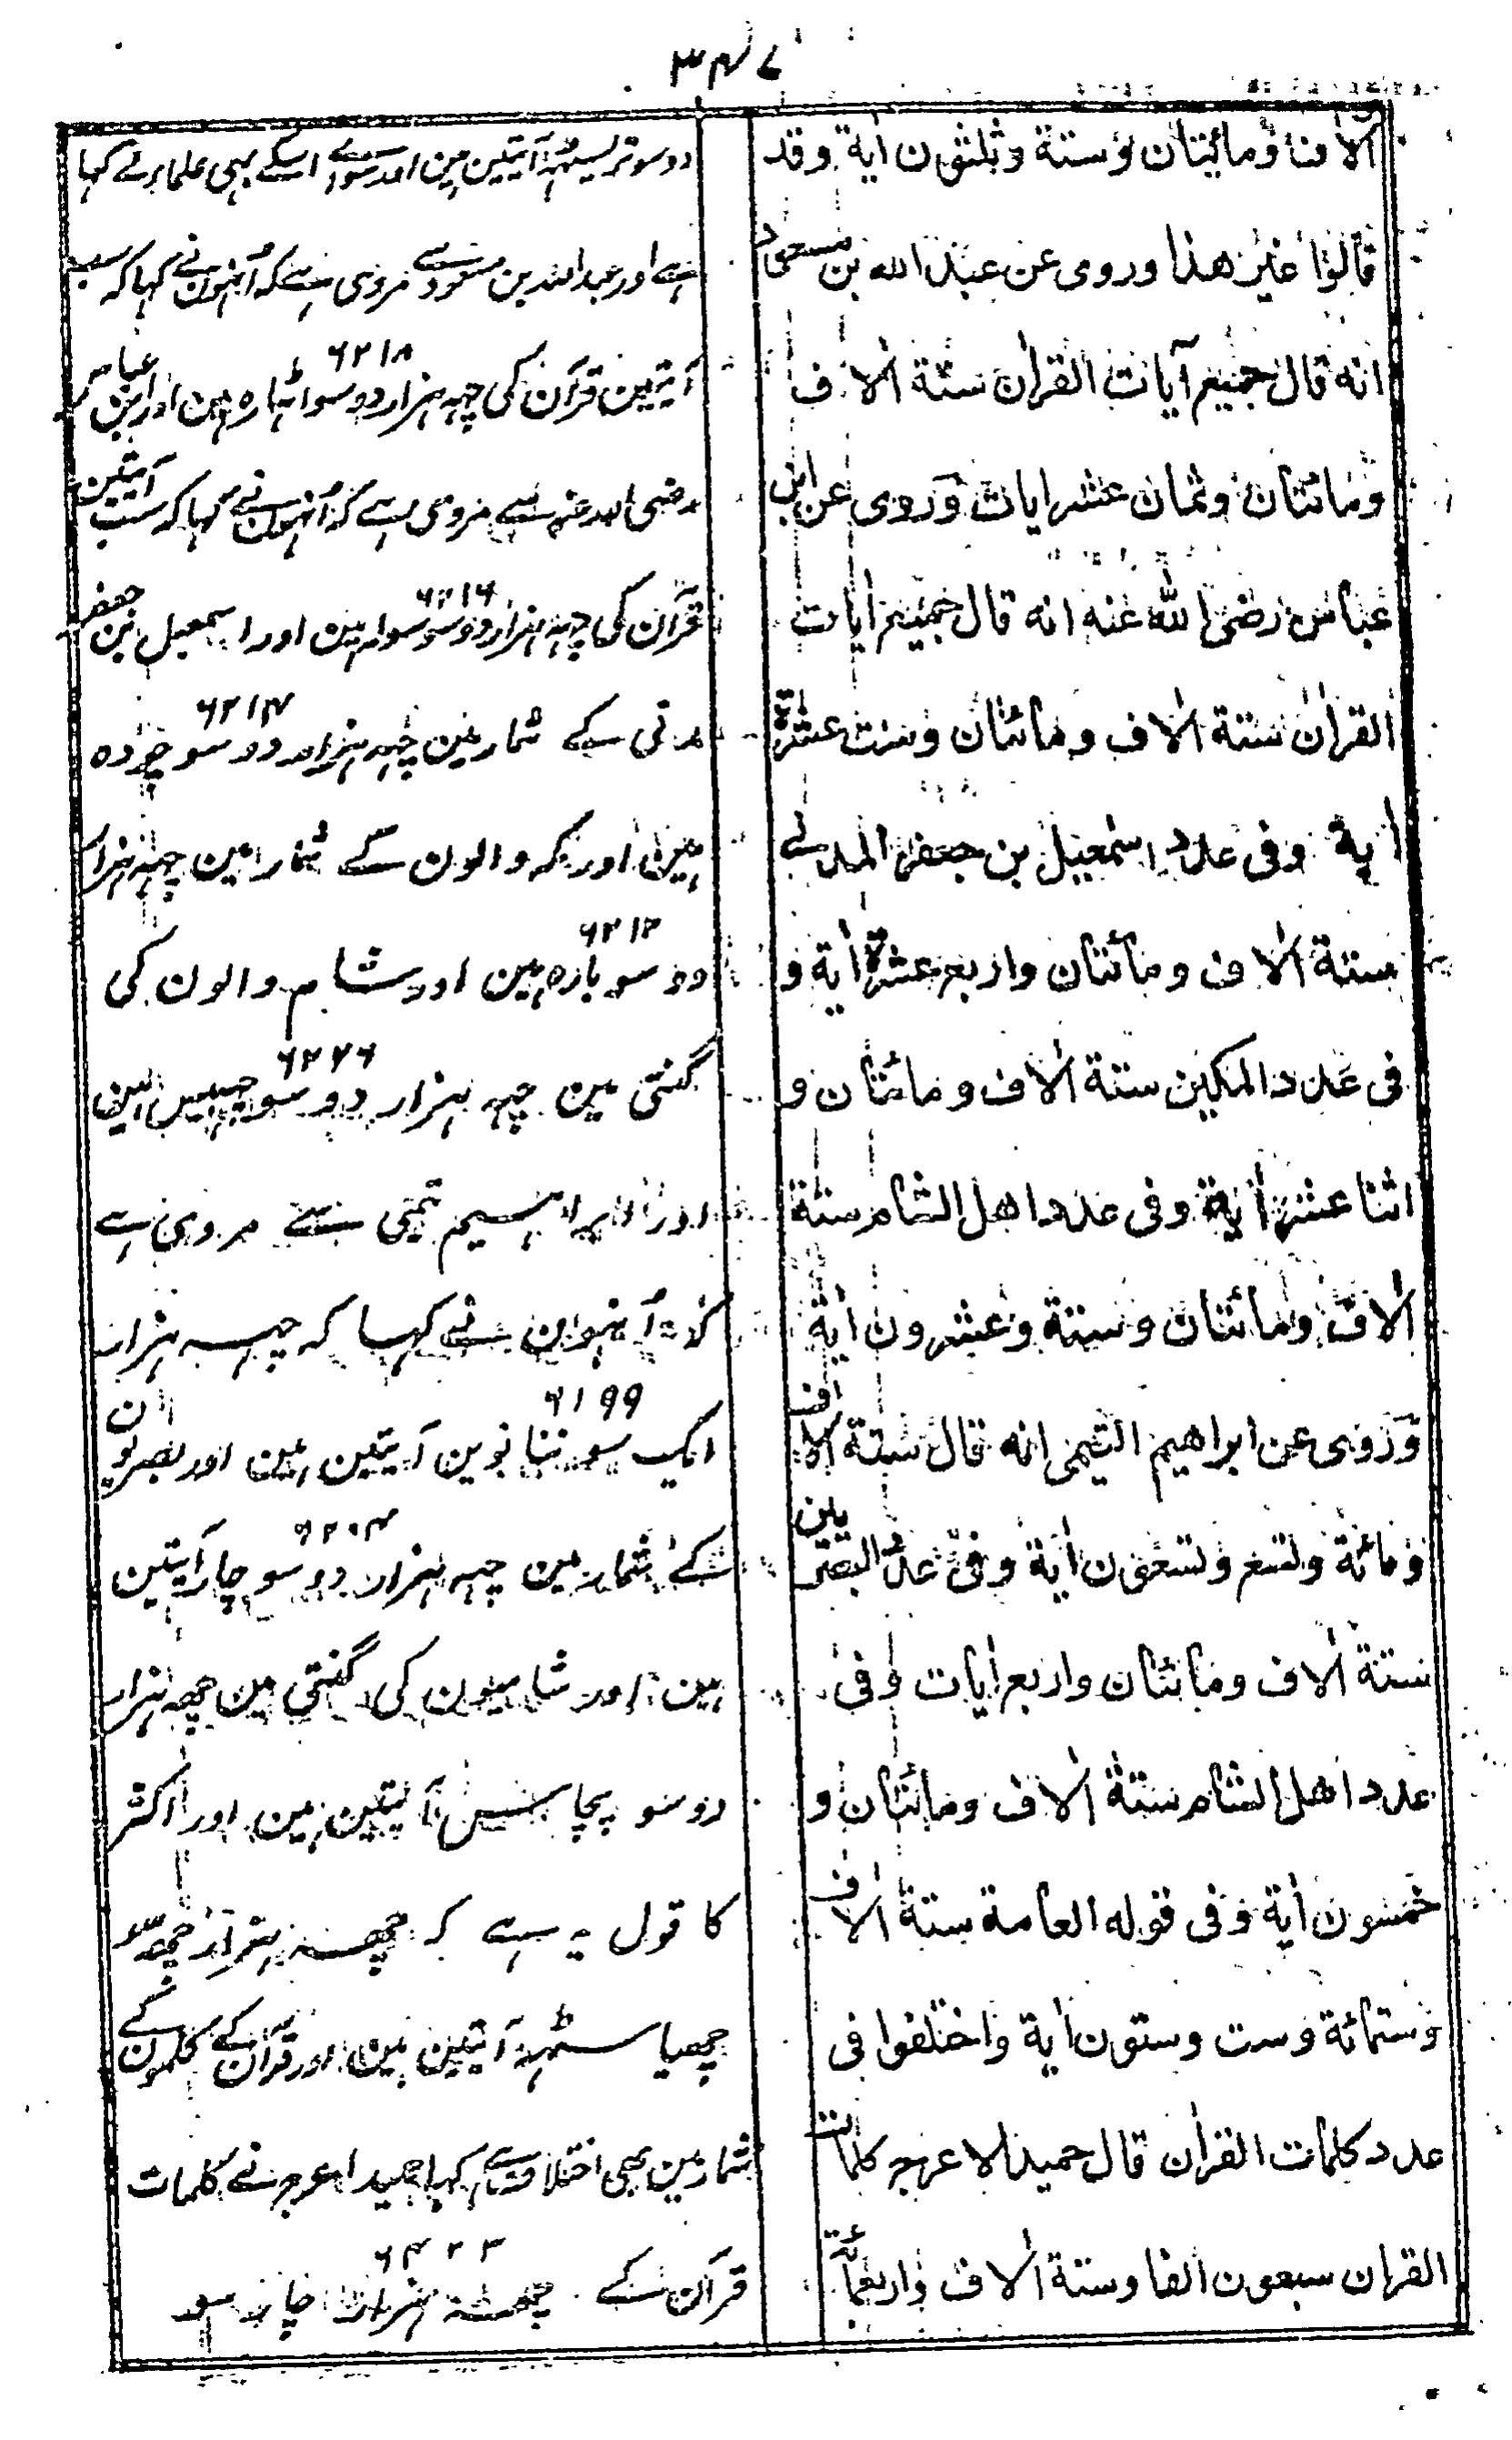 ٣٤٧
الافا ومائتان وستة وثلثون اية وقد
قالوا غير هذا وروى عن عبد الله بن مسعود
انه قال جميع آيات القران ستة الاف
ومائتان وثمان عشر ايات وروى عن ابن
عباس رضى الله عنه انه قال جميع ايات
القران ستة الاف ومائتان وست عشرة
اية وفى عدد اسمعيل بن جعفر المدنى
ستة الاف ومائتان واربع عشرة اية و
فى عدد المكيين ستة الاف ومائتان و
اثنا عشر اية وفى عدد اهل الشام ستة
الاف ومائتان وستة وعشرون اية
وروى عن ابراهيم التيمى انه قال ستة الاف
ومائة وتسع وتسعون اية وفى عدد البصريين
ستة الاف ومائتان واربع ايات وفى
عدد اهل الشام ستة الاف ومائتان و
خمسون اية وفى قوله العامة ستة الاف
وستمائة وست وستون اية واختلفوا فى
عدد كلمات القران قال حميد الاعرج كلمات
القران سبعون الفا وستة الاف واربعمائة
دو سو تریسٹھ آیتین ہین اور سوائے اسکے بہی علما نے کہا
ہے اور عبد اللہ بن مسعود سے مروی ہے کہ اُنہون نے کہا کہ سب
٦٢١٨
آیتین قرآن کی چہہ ہزار دو سو اٹہارہ ہین اور ابن عباس
رضی اللہ عنہ سے مروی ہے کہ اُنہون نے کہا کہ سب آیتین
٦٢١٦
قرآن کی چہہ ہزار دو سو سولہ ہین اور اسمعیل بن جعفر
٦٢١٤
مدنی کے شمار مین چہہ ہزار دو سو چودہ
ہین اور مکہ والون کے شمار مین چہہ ہزار
٦٢١٢
دو سو بارہ ہین اور شام والون کی
٦٢٢٦
گنتی مین چہہ ہزار دو سو چہبیس ہین
اور ابراہیم تیمی سے مروی ہے
کہ اُنہون نے کہا کہ چہہ ہزار
٦١٩٩
ایک سو ننانوین آیتین ہین اور بصریون
٦٢٠٤
کے شمار مین چہہ ہزار دو سو چار آیتین
ہین اور شامیون کی گنتی مین چھہ ہزار
دو سو پچاس آیتین ہین اور اکثر
کا قول یہ ہے کہ چھہ ہزار چھہ سو
چھیاسٹہہ آیتین ہین اور قرآن کے کلمون کے
شمار مین بھی اختلاف ہے کہا حمید اعرج نے کلمات
٦٤٢٣
قرآن کے چھہ ہزار چار سو